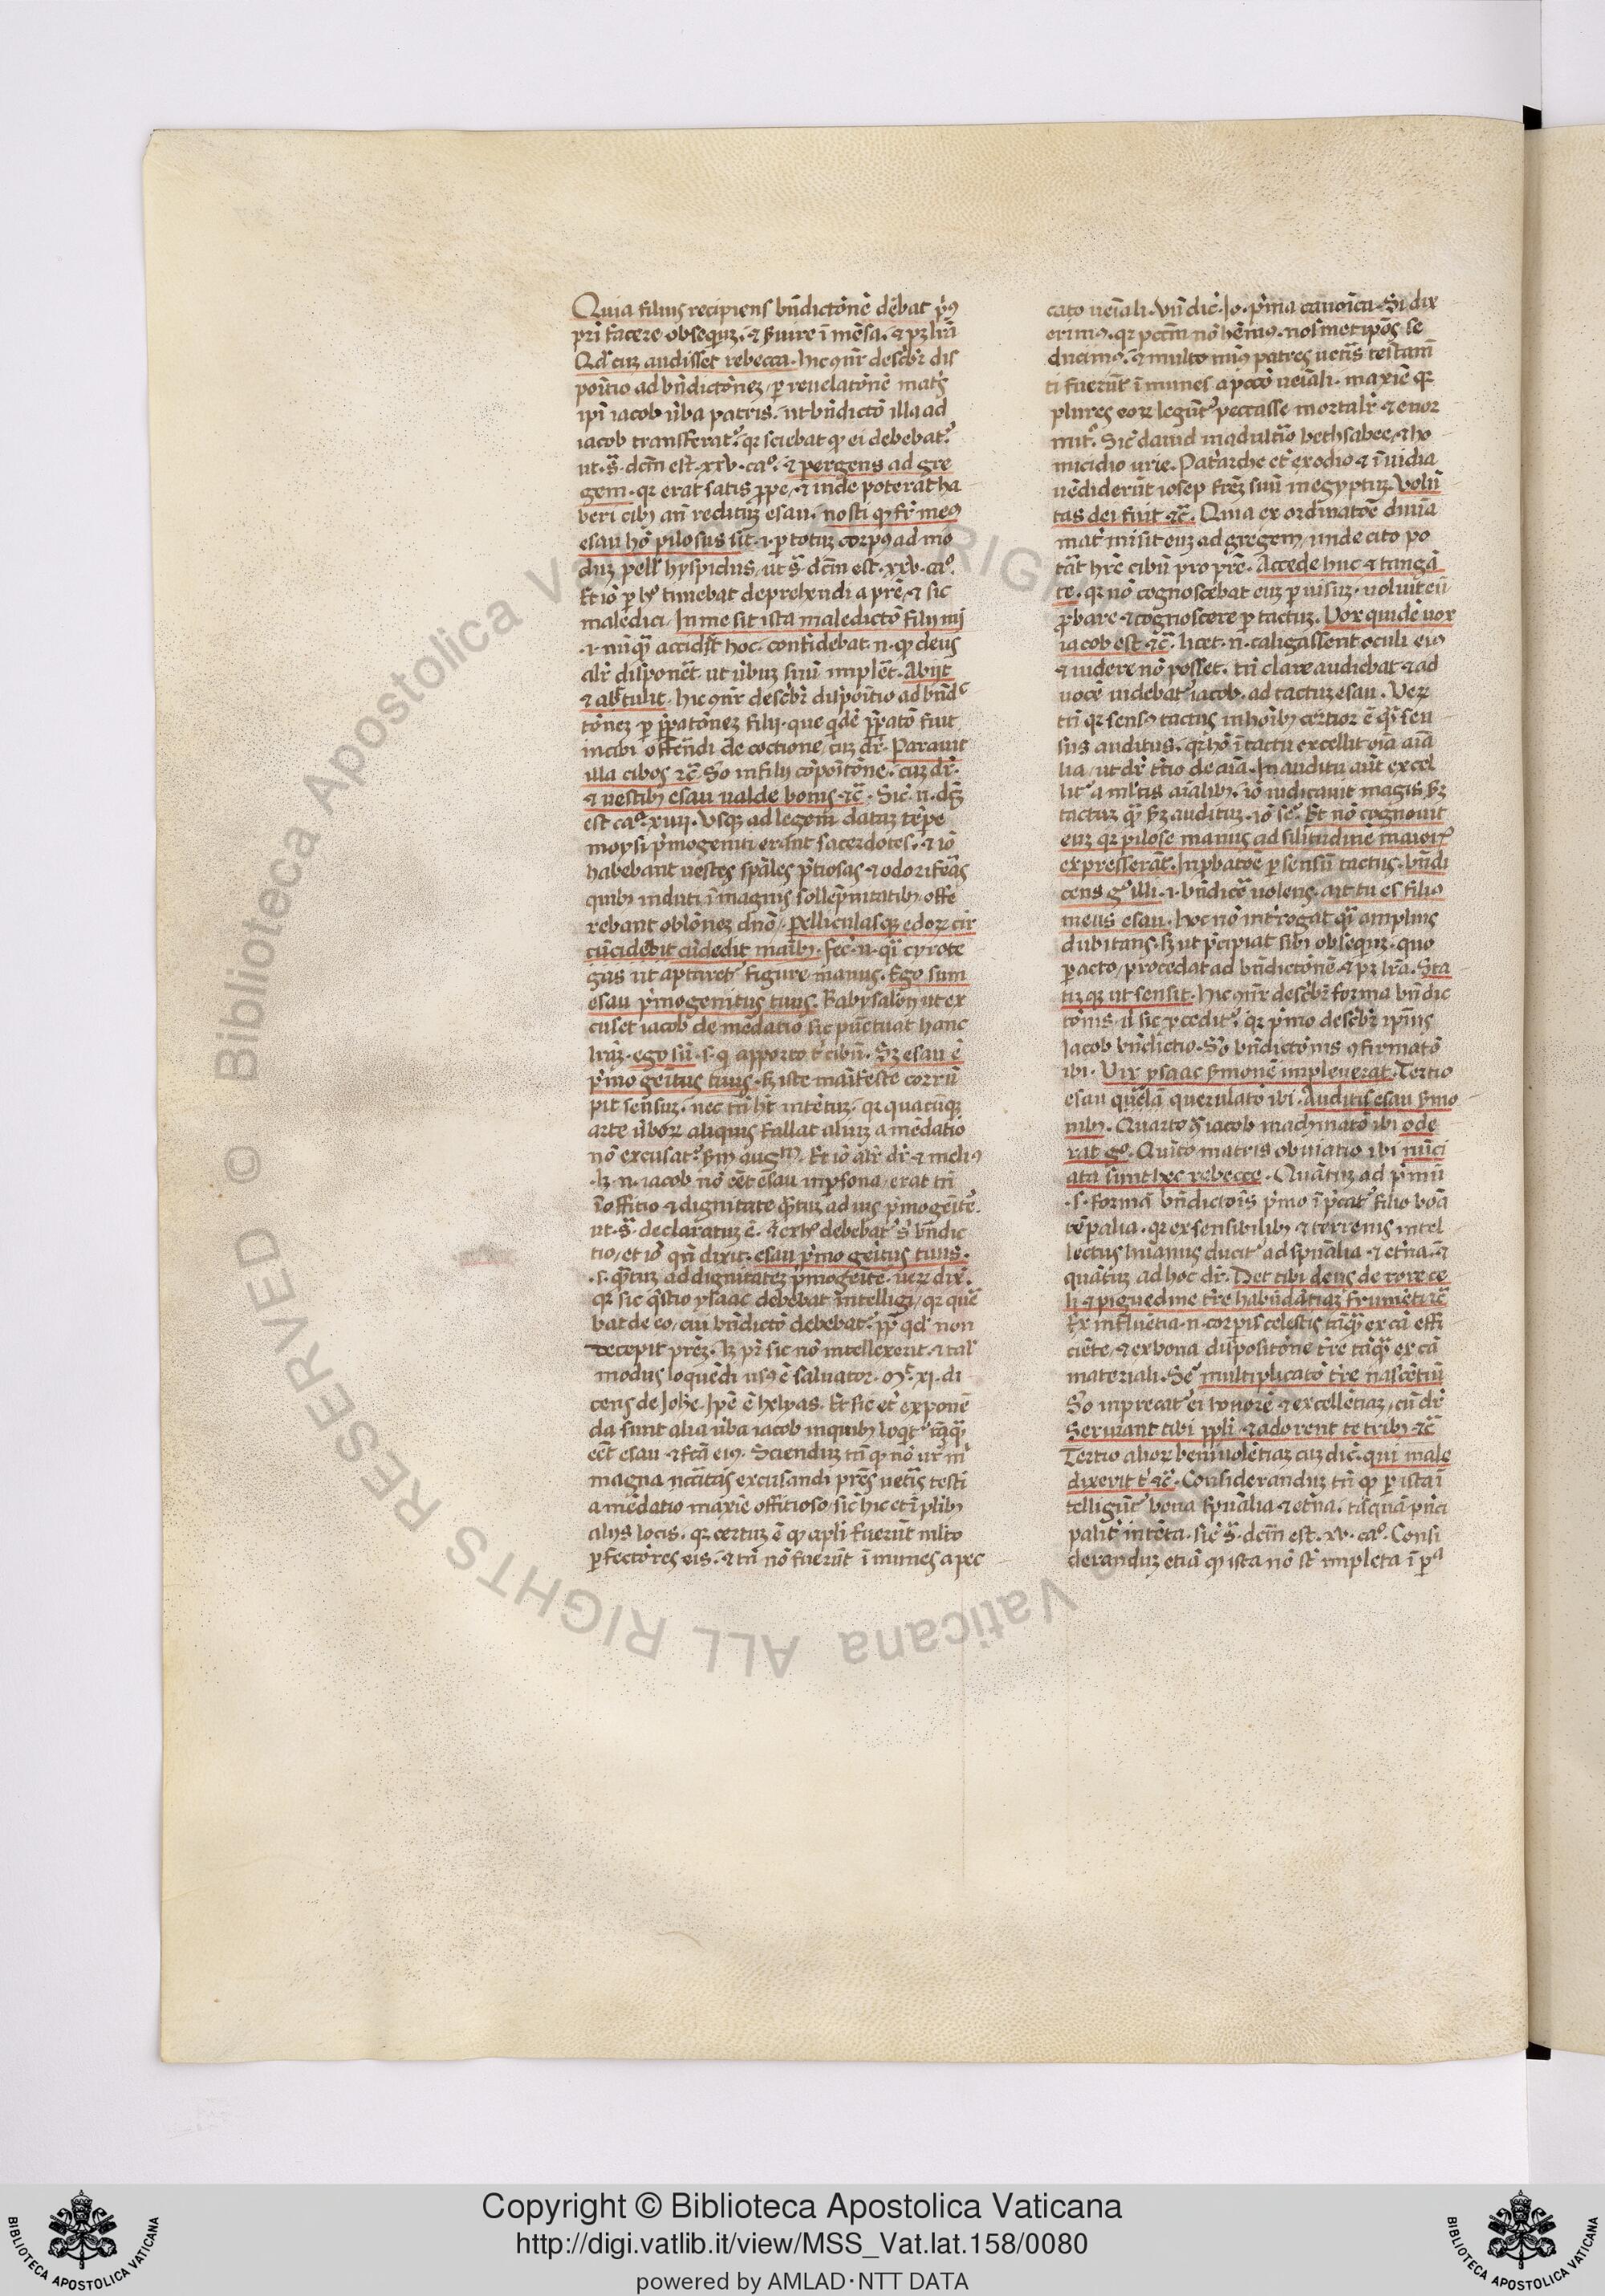 Quia filius recipiens bn̄dictōnē debat prius
pri facere obsequiuȝ. ⁊ ẜuire ī mēsa. ⁊ pȝ lrā
Qd̄ cuȝ audisset rebecca. hic ꝯnr̄ describr̄ dis
poītio ad bn̄dictōneȝ ꝑ reuelatōnē matris
ipī iacob ūba patris. ut bn̄dictō illa ad
iacob transferat᷑. qr sciebat ꝙ ei debebat᷑.
ut. s̄. dcm̄ est. xxv. caº. ⁊ pergens ad gre
gem. qr erat satis ꝓpe, ⁊ inde poterat ha
beri cibꝫ an̄ redituȝ esau. nosti ꝙ fr̄ meꝰ
esau hō pilosus sit. i. ꝑ totuȝ corpꝰ ad mo
duȝ pell' hyspidus, ut s̄. dcm̄ est. xxv. caº.
Et iō ꝑ hº timebat deprehendi a prē, ⁊ sic
maledici. In me sit ista maledictō fili mi
.i. nūqꝫ accidit hoc. confidebat. n. ꝙ deus
alr̄ disponēt. ut ūbuȝ suū implēt. Abijt
⁊ abstulit. hic ꝯnr̄ describr̄ dispoītio ad bn̄dc
tōneȝ ꝑ p̄patōneȝ filij. que qdē p̄patō fuit
in cibi offēndi decoctione, cuȝ dr̄. Parauit
illa cibos ⁊c̄. So in filij cōpoītōne. cuȝ dr̄.
⁊ uestibꝫ esau ualde bonis ⁊c̄. Sic. n. dc̄m
est caº. xiiij. Vsqꝫ ad legem dataȝ tēpe
moysi p̄mogeniti erānt sacerdotes. ⁊ iō
habebant uestes spāles p̄tiosas ⁊ odoriferās
quibꝫ induti ī magnis sollēpnitatibꝫ offe
rebant oblōneȝ dnō. Pelliculasqꝫ edoꝝ cir
cūcidedit cūdedit maībꝫ. fec̄. n. qsi cyrote
gas ut aptaret᷑ figure manus. Ego sum
esau p̄mogenitus tuus. Rabysalon ut ex
cuset iacob de mēdatio sic pūctuat hanc
lr̄aȝ. ego sū. s. q apporto t' cibū. Sȝ esau ē
p̄mogeītus tuus. sȝ iste maīfeste corrū
pit sensuȝ. nec tn̄ hȝ intētuȝ. qr quacūqꝫ
arte ūboꝝ aliquis fallat aliuȝ a mēdatio
nō excusat᷑. ẜm aug̃. Et iō alr̄ dr̄ ⁊ meliꝰ
. lȝ. n. iacob nō eēt esau in ꝑsona, erat tn̄
ī offitio ⁊ dignitate qtuȝ ad ius p̄mogeīte.
ut. s̄. declaratuȝ ē. ⁊ ex hº debebat᷑ s' bn̄dic
tio, et iō qn̄ dixit. esau p̄mogeītus tuus.
.s. qtuȝ ad dignitateȝ p̄mogeīte. ueꝝ dix̄.
qr sic q̄stio ysaac debebat intelligi, qr quē
bat de eo, cui bn̄dictō debebat᷑. pp̄ qd̄ non
decepit prēȝ. lȝ pr̄ sic nō intellexerit. ⁊ tal'
modus loquēdi usꝰ ē saluator. mt̄. xi. di
cens de Johe. Ipē ē helyas. Et sic et̄ exponē
da sunt alia ūba iacob in quibꝫ loqr̄ tāqꝫ
eēt esau ⁊ fcā eiꝰ. Sciendu tn̄ ꝙ nō ur̄ mᶦ
magna ncitās excusandi prēs uetis testi
a mēdatio maxie offitioso, sic hic et ī plibꝫ
alijs locis. qr certuȝ ē ꝙ apli fuerūt mlto
ꝑfectores eis. ⁊ tn̄ nō fuerūt īmunes a pec
cato ueīali. Vn̄ dic. Jo. p̄ma canoīca. Si dix
erimꝰ. qr pccm̄ nō hēmꝰ. nosmetipōs se
ducimꝰ. ⁊ multo minꝰ patres uetis testam̄
ti fuerūt īmunes a pcco ueīali. maxie qr
plures eoꝝ legūt᷑ peccasse mortalr̄ ⁊ enor
mit᷑. Sic dauid in adultio bethsabee, ⁊ ho
micidio urie. Patarche et ex odio ⁊ īuidia
uēdiderūt iosep frēȝ suū in egyptuȝ. Volū
tas dei fuit ⁊c̄. Quia ex ordinatōe diuīa
mat misit euȝ ad gregem, unde cito po
tāt hrē cibū pro prē. Accede huc ⁊ tangā
te. qr nō cognoscebat euȝ ꝑ uisuȝ. uoluit eū
ꝓbare ⁊ cognoscere ꝑ tactuȝ. Vox quidē uox
iacob est ⁊c̄. licet. n. caligassent oculi eiꝰ
⁊ uidere nō posset. tn̄ clare audiebat ⁊ ad
uocē uidebat᷑ iacob. ad tactuȝ esau. Veꝝ
tn̄ qr sensꝰ tactus in hoībꝫ certior ē q̄ sen
sus auditus. qr hō ī tactu excellit oīa aīa
lia, ut dr̄ t̄tio de aīa. In auditu aūt excel
lit᷑ a mltis aīalibꝫ. iō iudicauit magis ẜȝ
tactuȝ q̄ ẜȝ audituȝ. iō se᷑. Et nō cognouit
euȝ qr pilose manus ad silitudinē maioris
expresserāt. In ꝓbatōe ꝑ sensū tactus. bn̄di
cens gº illi. i. bn̄dice uolens. ait tu es filio
meus esau. hoc nō introgat qsi amplius
dubitans. sȝ ut p̄cipiat sibi obsequȝ. quo
ꝑacto, procedat ad bn̄dictōnē. ⁊ pȝ lrā. Sta
tīqꝫ ut sensit. hic ꝯnr̄ describr̄ forma bn̄dic
tōnis, ⁊ sic ꝓcedit᷑. qr p̄mo describr̄ ipīus
Jacob bn̄dictio. So bn̄dictōnis ꝯfirmatō
ibi. Vix ysaac ẜmonē impleuerat. Tertio
esau quelā querulatō ibi. Auditis esau ẜmo
nibꝫ. Quarto ꝯ iacob machinatō ibi ode
rat gº. Quīto matris obuiatio ibi nūci
ata sunt hec rebecce. Quātuȝ ad p̄mū
.s. formā bn̄dictōis p̄mo ip̄cat᷑ filio bōa
tēpalia. qr ex sensibilibꝫ ⁊ terrenis intel
lectus huānus ducit᷑ ad spūalia ⁊ etna. ⁊
quātuȝ ad hoc dr̄. Det tibi deus de rore ce
li ⁊ piguedine tre habūdātiaȝ frumēti ⁊c̄
Ex influētia. n. corpis celestis tāqꝫ ex cā effi
ciēte, ⁊ ex bona dispositōne tre tāqꝫ ex cā
materiali. Se᷑ multiplicatō tre nascētiū
So inprecat᷑ ei honorē ⁊ excellētiaȝ, cū dr̄
Seruiant tibi ppli ⁊ adorent te tribꝫ ⁊c̄
Tertio alioꝝ beniuolētiaȝ cuȝ dic. qui male
dixerit t' ⁊c̄. Considerandu tn̄ ꝙ ꝑ ista ī
telligūt᷑ bona spūalia ⁊ etna. tāquā p̄nci
palit̄ intēta. sic s̄. dcm̄ est. xv. caº. Consi
deranduȝ etiā ꝙ ista nō st̄ impleta ī ꝑa
Copyright © Biblioteca Apostolica Vaticana
http://digi.vatlib.it/view/MSS_Vat.lat.158/0080
powered by AMLAD·NTT DATA
BIBLIOTECA APOSTOLICA VATICANA
BIBLIOTECA APOSTOLICA VATICANA
© Biblioteca Apostolica Vaticana ALL RIGHTS RESERVED